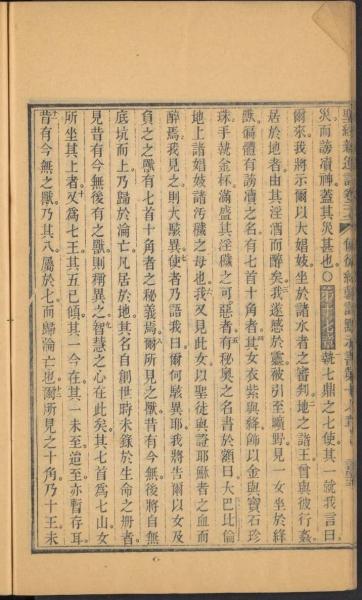 災而謗讟神蓋其災甚也○第十七篇執七鼎之七使其一就我言曰
爾來我將示爾以大娼妓坐於諸水者之審判地之諸王曾與彼行姦
居於地者由其淫酒而醉矣我遂感於靈被引至曠野見一女坐於絳
獸徧體有謗讟之名有七首十角者其女衣紫與絳飾以金與寶石珍
珠手執金杯滿盛其淫穢之可惡者有秘奧之名書於額曰大巴比倫
地上諸娼妓諸汚穢之母也我又見此女以聖徒與證耶穌者之血而
醉焉我見之則大駭異使者乃語我曰爾何駭異耶我將告爾以女及
負之之獸有七首十角者之秘義焉爾所見之獸昔有今無後將自無
底坑而上乃歸於淪亡凡居於地其名自創世時未錄於生命之冊者
見昔有今無後有之獸則稱異之智慧之心在此矣其七首爲七山女
所坐其上者又爲七王其五已傾其一今在其一未至造至亦暫存耳
昔有今無之獸乃其八屬於七而歸淪亡也爾所見之十角乃十王未